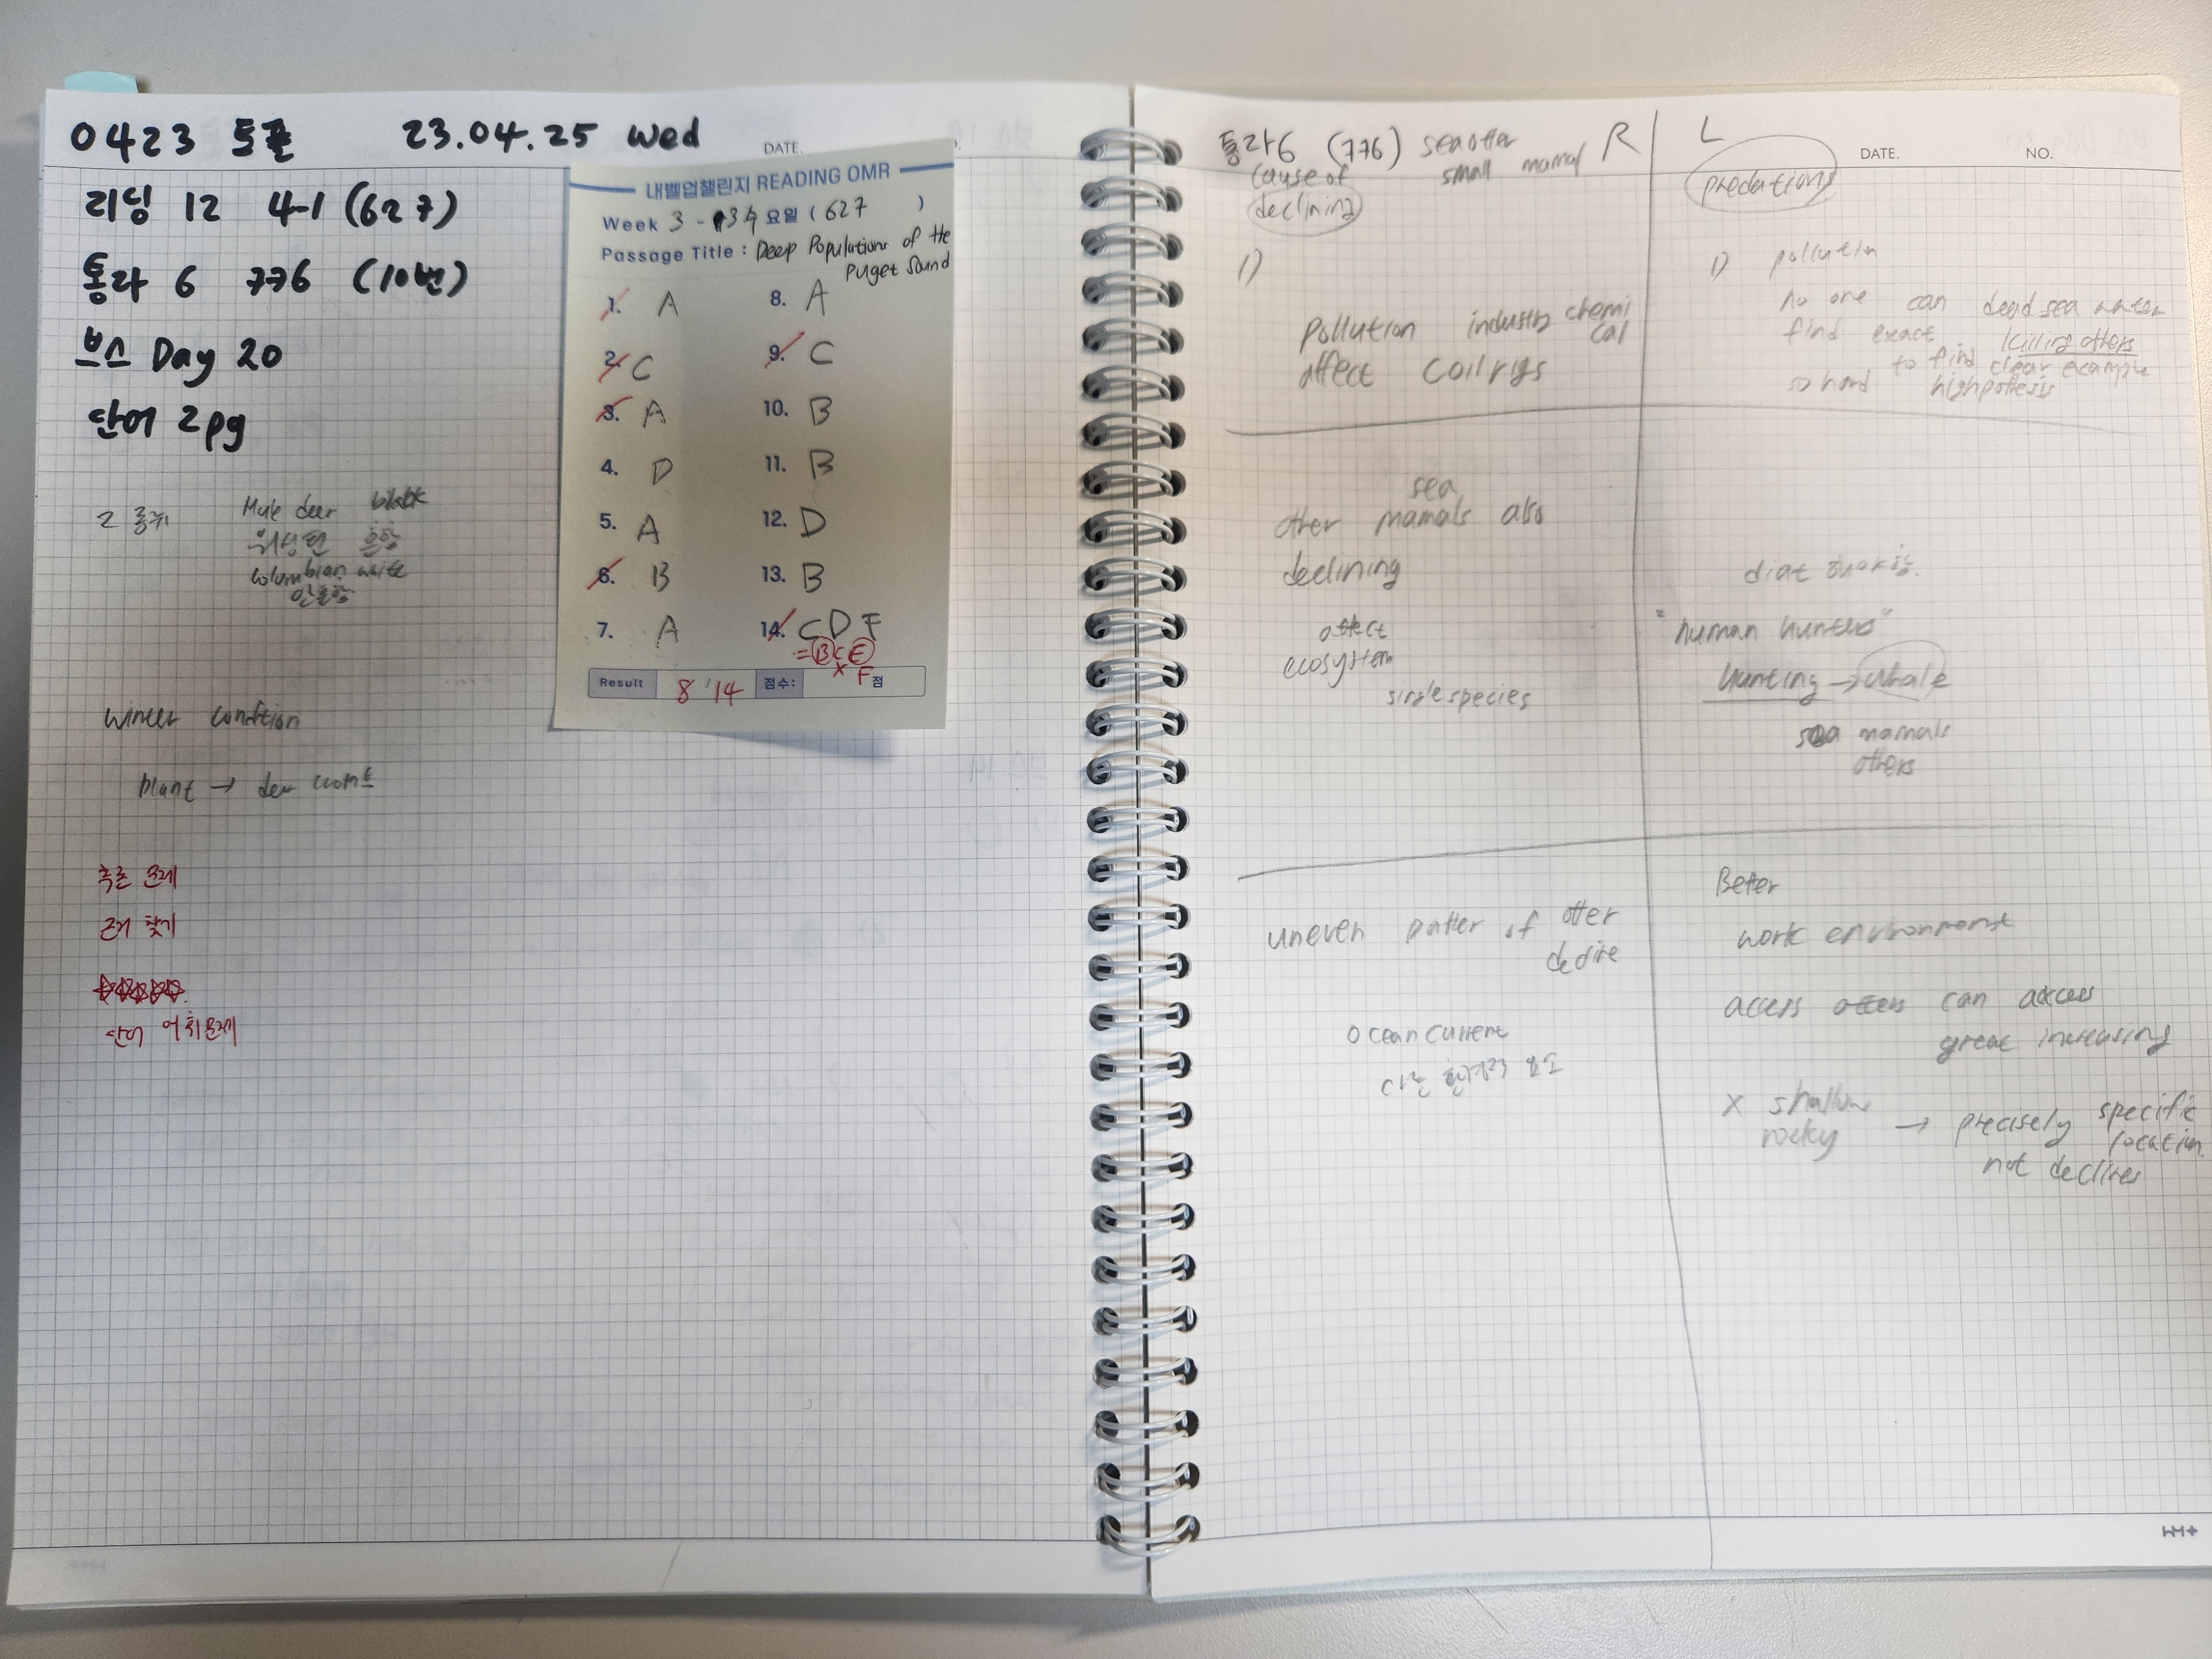 0423 토플 23.04.25 Wed
DATE.
리딩 12 4-1 (627)
통라 6 776 (10번)
보스 Day 20
단어 2pg
내벨업챌린지 READING OMR
Week 3 - 요일 (627 )
Passage Title : Deep Populations of the
Puget Sound
1. A
2. C
3. A
4. D
5. A
6. B
7. A
8. A
9. C
10. B
11. B
12. D
13. B
14. C D F
= B C E
X F
Result 8 / 14 점수: 점
2 종류 Mule deer black
흔함
Columbian white
안흔함
winter condition
plant →
추론 문제
근거 찾기
단어 어휘문제
통라6 (776) sea otter R
small mamal
cause of
declining
1)
pollution industry chemi
cal
affect
sea
other mamals also
declining
affect
ecosystem
single species
uneven patter of otter
Ocean current
다른 환경적 요소
L
DATE. NO.
predations
1) pollution
no one can dead sea water
find exact killing otters
to find clear example
so hard highpothesis
"human hunters"
hunting → whale
sea mamals
others
Better
work environment
access can access
great increasing
X shallow
rocky → precisely specific
location
not declines